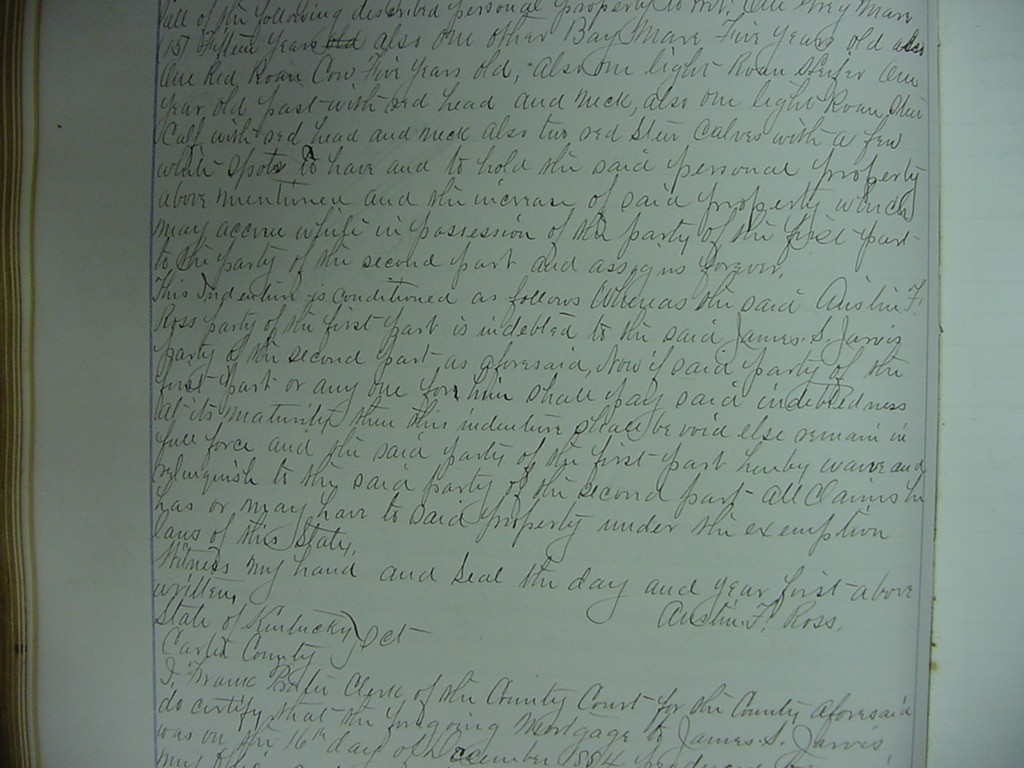 all of the following described personal property to wit: One Grey Mare
15 Fifteen years old also one other Bay Mare Five years old also
One Red Roan Cow Five years old, also one light Roan Heifer One
year old past with red head and neck, also one light Roan Steer
Calf with red head and neck also two red Steer Calves with a few
white spots To have and to hold the said personal property
above mentioned and the increase of said property which
may accrue while in possession of the party of the first part
to the party of the second part and assigns forever.
This Indenture is conditioned as follows Whereas the said Austin F.
Ross party of the first part is indebted to the said James S. Jarvis
party of the second part as aforesaid, Now if said party of the
first part or any one for him shall pay said indebtedness
at its maturity then this indenture shall be void else remain in
full force and the said party of the first part hereby waive and
relinquish to the said party of the second part all Claims he
has or may have to said property under the exemption
laws of this State.
Witness my hand and Seal the day and year first above
written.
Austin F. Ross.
State of Kentucky
Carter County } Sct
I, Frank Clerk of the County Court for the County aforesaid
do certify that the foregoing Mortgage to James S. Jarvis
was on the 16th day of December 1884
my office